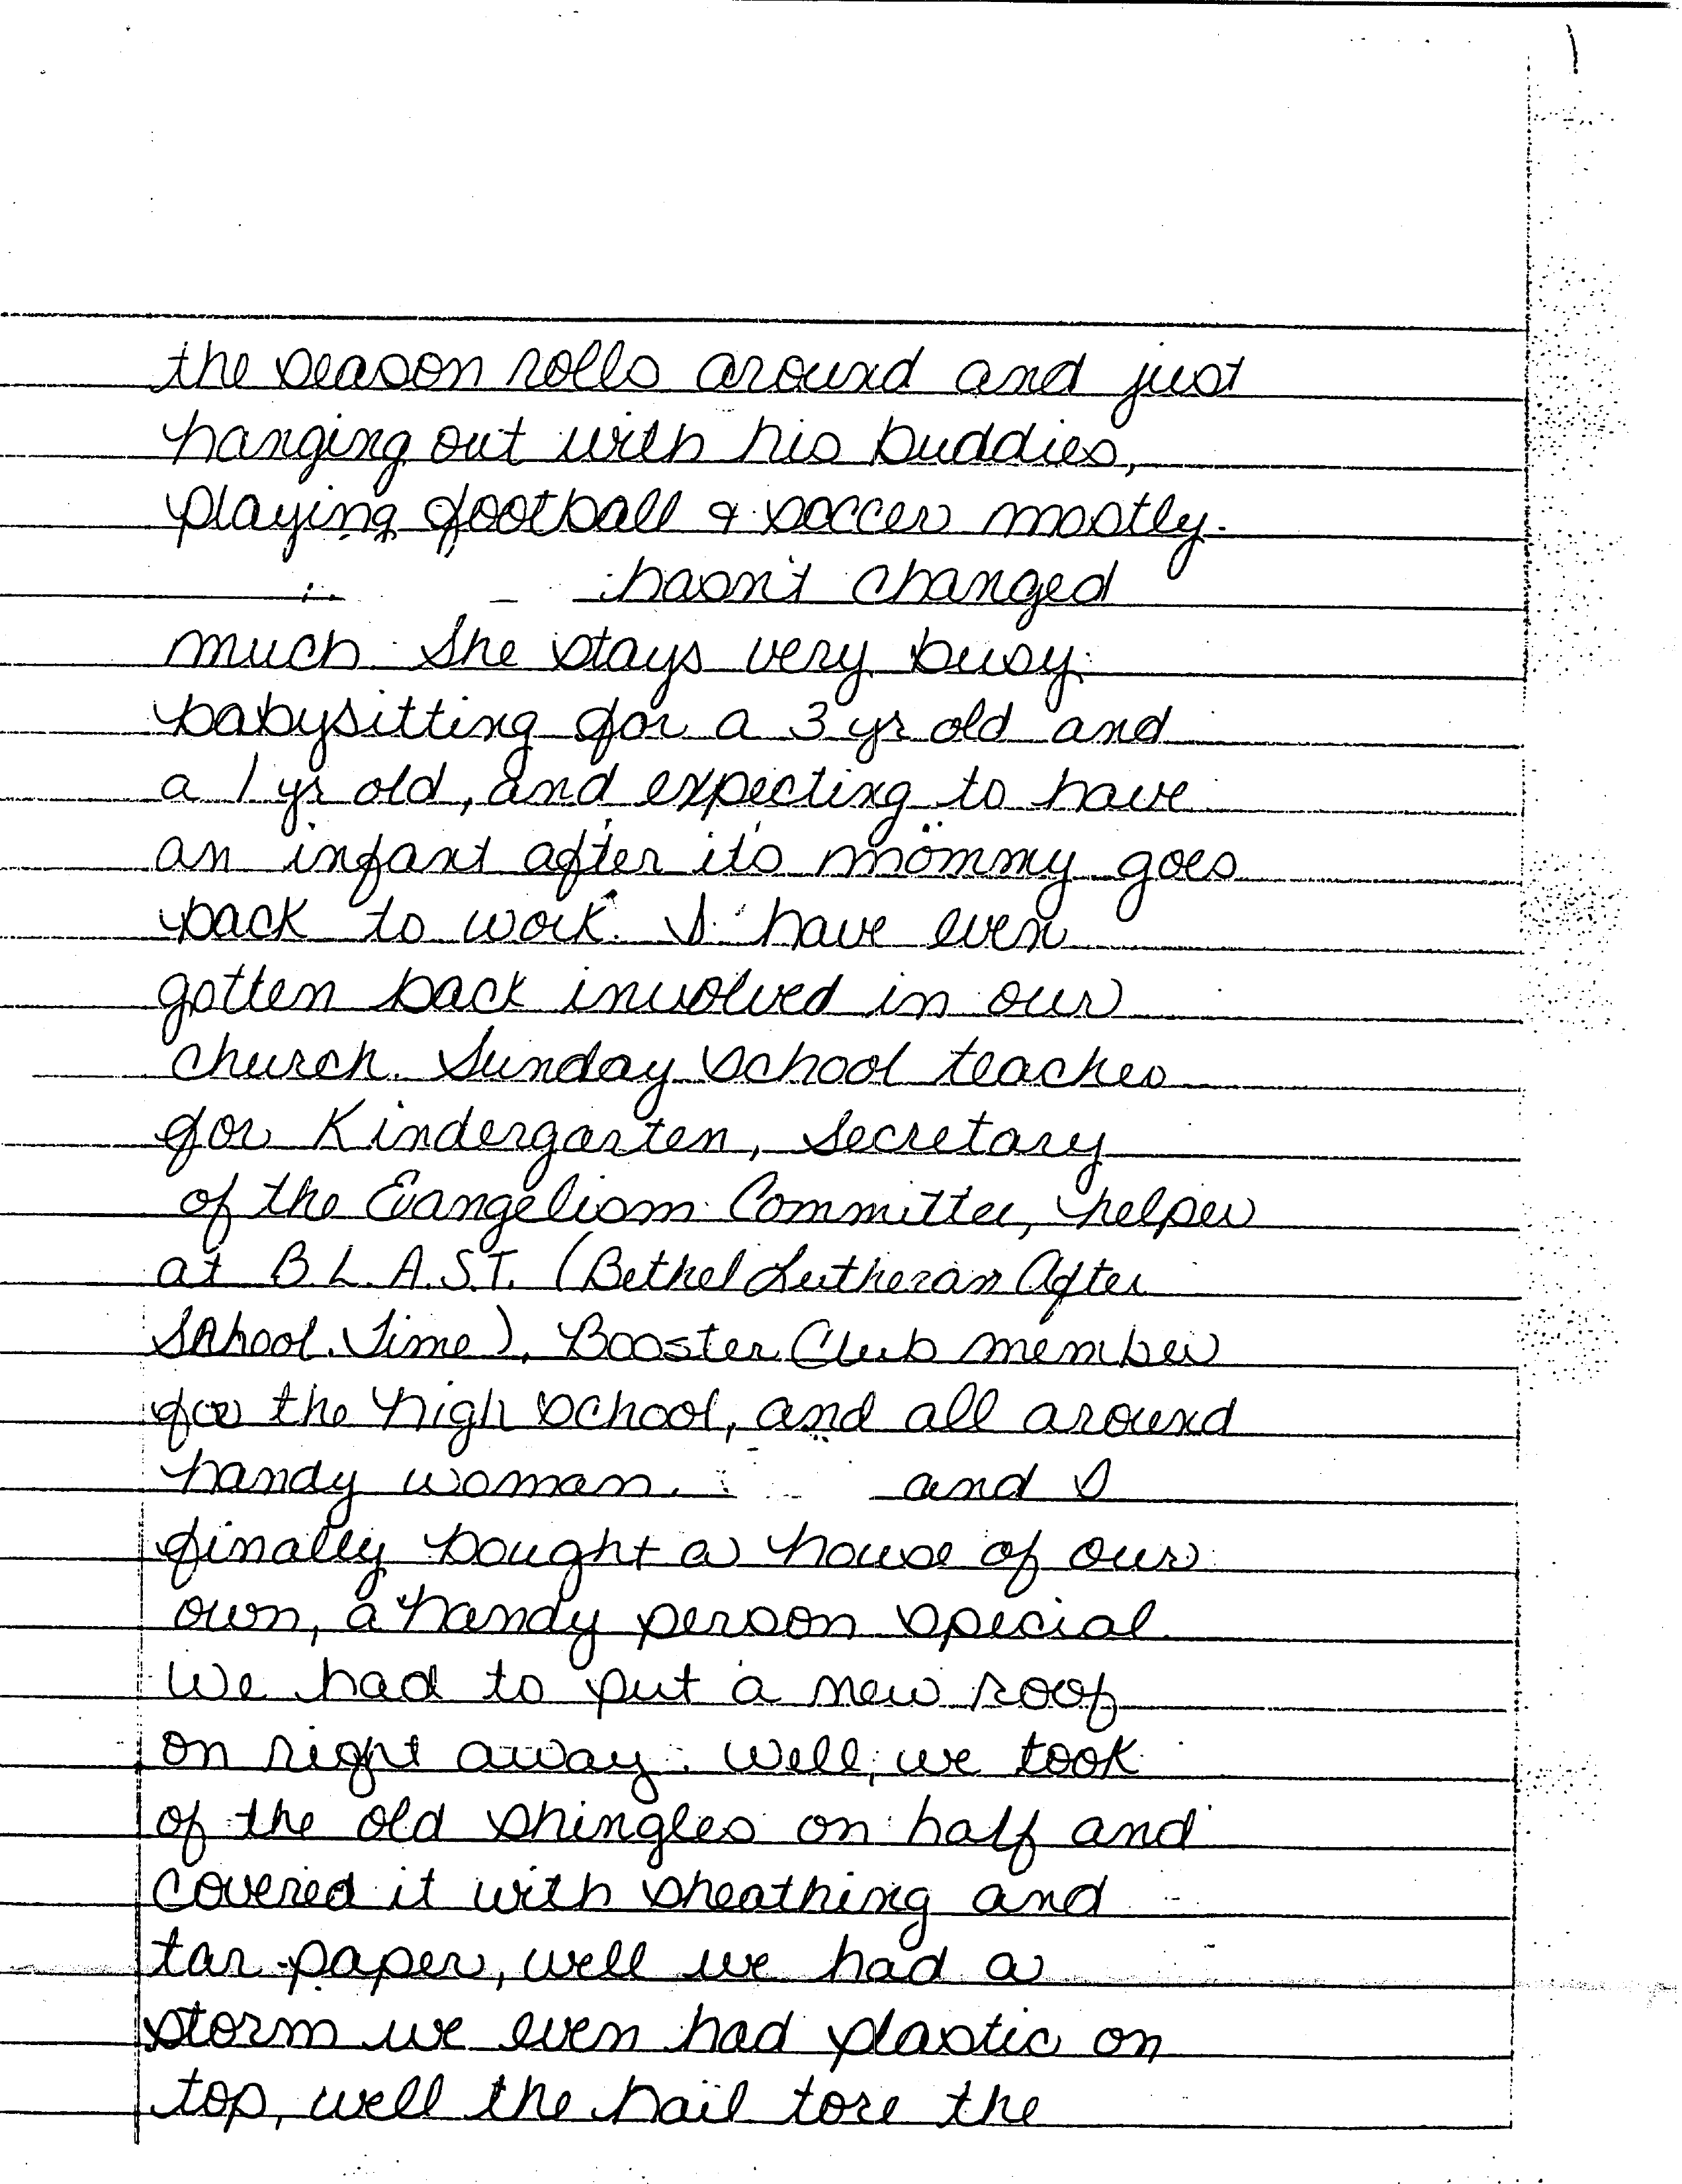 the season rolls around and just
hanging out with his buddies,
playing football & soccer mostly.
hasn't changed
much. She stays very busy
babysitting for a 3 yr old and
a 1 yr old, and expecting to have
an infant after its mommy goes
back to work. I have even
gotten back involved in our
church. Sunday School teacher
for Kindergarten, Secretary
of the Evangelism Committee, helper
at B.L.A.S.T. (Bethel Lutheran After
School Time), Booster Club member
for the high school, and all around
handy woman. and I
finally bought a house of our
own, a handy person special.
We had to put a new roof
on right away. Well, we took
of the old shingles on half and
covered it with sheathing and
tar-paper, well we had a
storm we even had plastic on
top, well the hail tore the